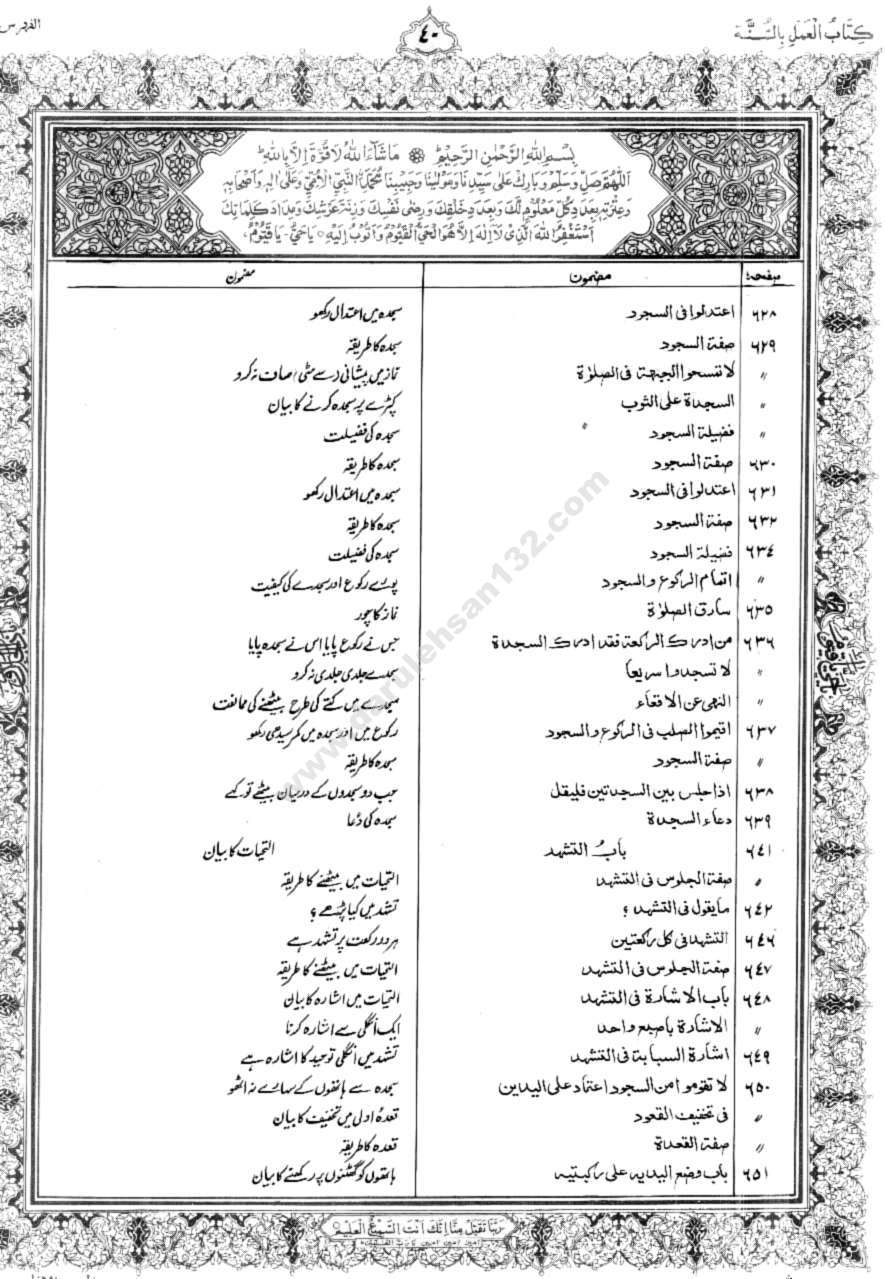 کِتَابُ الْعَمَلِ بِالسُّنَّة
٤٠
الفہرس
بِسْمِ اللهِ الرَّحْمٰنِ الرَّحِيْمِ مَا شَآءَ اللهُ لَا قُوَّةَ اِلَّا بِاللهِ
اَللّٰهُمَّ صَلِّ وَسَلِّمْ وَبَارِكْ عَلٰى سَيِّدِنَا وَمَوْلٰينَا وَحَبِيْبِنَا مُحَمَّدِنِ النَّبِيِّ الْاُمِّيِّ وَعَلٰى اٰلِهٖ وَاَصْحَابِهٖ
وَعِتْرَتِهٖ بِعَدَدِ كُلِّ مَعْلُوْمٍ لَّكَ وَبِعَدَدِ خَلْقِكَ وَرِضٰى نَفْسِكَ وَزِنَةِ عَرْشِكَ وَمِدَادِ كَلِمَاتِكَ
اَسْتَغْفِرُ اللهَ الَّذِيْ لَا اِلٰهَ اِلَّا هُوَ الْحَيُّ الْقَيُّوْمُ وَاَتُوْبُ اِلَيْهِ يَا حَيُّ يَا قَيُّوْمُ
صفحہ مضمون مضمون
٦٢٨ اعتدلوا فی السجود سجدہ میں اعتدال رکھو
٦٢٩ صفة السجود سجدہ کا طریقہ
〃 لا تمسحوا الجبهة فی الصلوٰة نماز میں پیشانی (سے مٹی) صاف نہ کرو
〃 السجدة علی الثوب کپڑے پر سجدہ کرنے کا بیان
〃 فضيلة السجود سجدہ کی فضیلت
٦٣٠ صفة السجود سجدہ کا طریقہ
٦٣١ اعتدلوا فی السجود سجدہ میں اعتدال رکھو
٦٣٢ صفة السجود سجدہ کا طریقہ
٦٣٤ فضيلة السجود سجدہ کی فضیلت
〃 اتمام الركوع والسجود پورے رکوع اور سجدے کی کیفیت
٦٣٥ سارق الصلوٰة نماز کا چور
٦٣٦ من ادرك الركعة فقد ادرك السجدة جس نے رکوع پایا اس نے سجدہ پایا
〃 لا تسجدوا سريعا سجدے جلدی جلدی نہ کرو
〃 النهی عن الاقعاء سجدے میں کتے کی طرح بیٹھنے کی ممانعت
٦٣٧ اقيموا الصلب فی الركوع والسجود رکوع میں اور سجدہ میں کمر سیدھی رکھو
〃 صفة السجود سجدہ کا طریقہ
٦٣٨ اذا جلس بين السجدتين فليقل جب دو سجدوں کے درمیان بیٹھے تو کہے
٦٣٩ دعاء السجدة سجدہ کی دُعا
٦٤١ بابُ التشهد التحیات کا بیان
〃 صفة الجلوس فی التشهد التحیات میں بیٹھنے کا طریقہ
٦٤٢ ما يقول فی التشهد ؟ تشہد میں کیا پڑھے ؟
٦٤٦ التشهد فی كل ركعتين ہر دو رکعت پر تشہد ہے
٦٤٧ صفة الجلوس فی التشهد التحیات میں بیٹھنے کا طریقہ
٦٤٨ باب الاشارة فی التشهد التحیات میں اشارہ کا بیان
〃 الاشارة باصبع واحد ایک انگلی سے اشارہ کرنا
٦٤٩ اشارة السبابة فی التشهد تشہد میں انگلی توحید کا اشارہ ہے
٦٥٠ لا تقوموا من السجود اعتماد علی اليدين سجدہ سے ہاتھوں کے سہارے نہ اٹھو
〃 فی تخفيف القعود قعدہ اولیٰ میں تخفیف کا بیان
〃 صفة القعدة قعدہ کا طریقہ
٦٥١ باب وضع اليديه علی ركبتيه ہاتھوں کو گھٹنوں پر رکھنے کا بیان
رَبَّنَا تَقَبَّلْ مِنَّا اِنَّكَ اَنْتَ السَّمِيْعُ الْعَلِيْمُ
www.darulehsan132.com